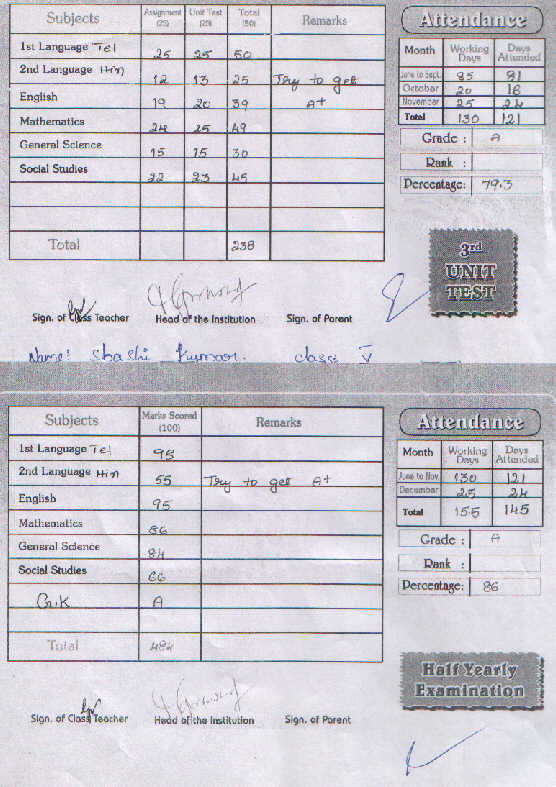 Subjects Assignment (25) Unit Test (25) Total (50) Remarks
1st Language Tel 25 25 50
2nd Language Hin 12 13 25 Try to get
English 19 20 39 A+
Mathematics 24 25 49
General Science 15 15 30
Social Studies 22 23 45
Total 238
Attendance
Month Working Days Days Attended
June to Sept. 85 81
October 20 16
November 25 24
Total 130 121
Grade : A
Rank :
Percentage: 79.3
3rd
UNIT
TEST
Sign. of Class Teacher Head of the Institution Sign. of Parent
Name: Shashi Kumar. class V
Subjects Marks Scored (100) Remarks
1st Language Tel 95
2nd Language Hin 55 Try to get A+
English 95
Mathematics 86
General Science 84
Social Studies 66
G.K A
Total 484
Attendance
Month Working Days Days Attended
June to Nov. 130 121
December 25 24
Total 155 145
Grade : A
Rank :
Percentage: 86
Half Yearly
Examination
Sign. of Class Teacher Head of the Institution Sign. of Parent